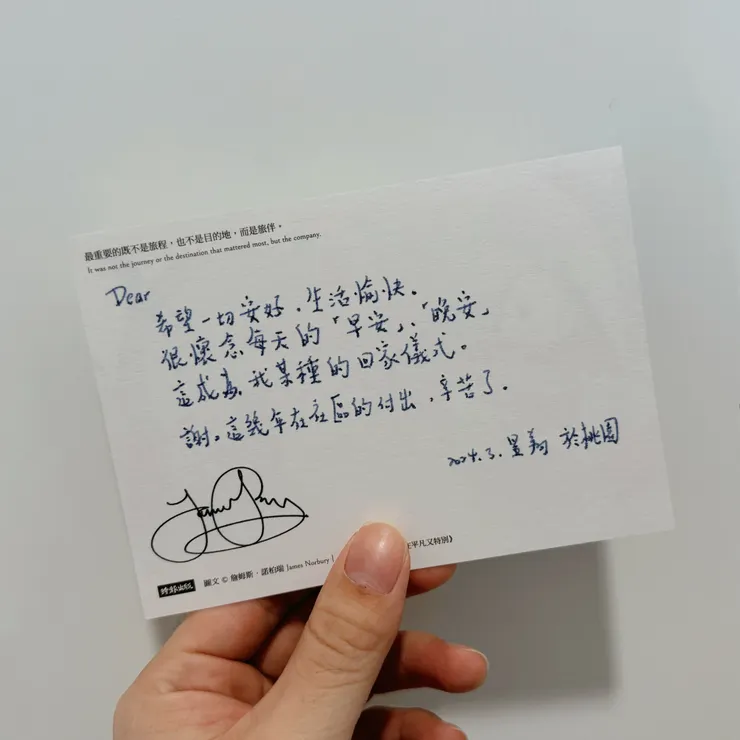 最重要的既不是旅程，也不是目的地，而是旅伴。
It was not the journey or the destination that mattered most, but the company.
Dear
希望一切安好，生活愉快。
很懷念每天的「早安」、「晚安」
這成為我某種的回家儀式。
謝謝這幾年在社區的付出，辛苦了。
2024.3. 昱翔 於桃園
James Norbury
時報出版 圖文 © 詹姆斯・諾柏瑞 James Norbury | 在平凡又特別》